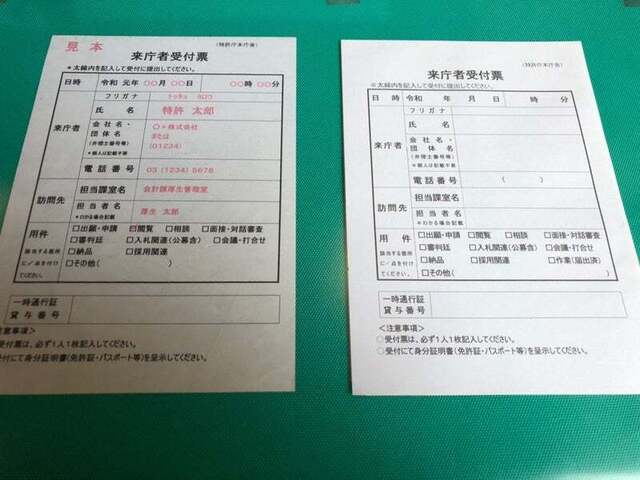 見本
(特許庁本庁舎)
来庁者受付票
＊太線内を記入して受付に提出してください。
日時 令和 元年 〇〇月 〇〇日 〇〇時 〇〇分
来庁者
フリガナ トッキョ タロウ
氏名 特許 太郎
会社名・団体名
(弁理士番号等)
＊個人は記載不要
〇×株式会社
または
(01234)
電話番号 03 (1234) 5678
訪問先
担当課室名 会計課厚生管理室
担当者名
＊わかる場合記載
厚生 太郎
用件
該当する箇所
に✓点を付けて
ください。
□出願・申請 ☑閲覧 □相談 □面接・対話審査
□審判廷 □入札関連(公募含) □会議・打合せ
□納品 □採用関連
□その他(
一時通行証
貸与番号
注意事項＞
受付票は、必ず1人1枚記入してください。
受付にて身分証明書(免許証・パスポート等)を呈示してください。
(特許庁本庁舎)
来庁者受付票
※太線内を記入して受付に提出してください。
日時 令和 年 月 日 時 分
来庁者
フリガナ
氏名
会社名・
団体名
(弁理士番号等)
＊個人は記載不要
電話番号 ( )
訪問先
担当課室名
担当者名
＊わかる場合記載
用件
該当する箇所
に✓点を付けて
ください。
□出願・申請 □閲覧 □相談 □面接・対話審査
□審判廷 □入札関連(公募含) □会議・打合せ
□納品 □採用関連 □作業(届出済)
□その他( )
一時通行証
貸与番号
＜注意事項＞
○受付票は、必ず1人1枚記入してください。
○受付にて身分証明書(免許証・パスポート等)を呈示してください。